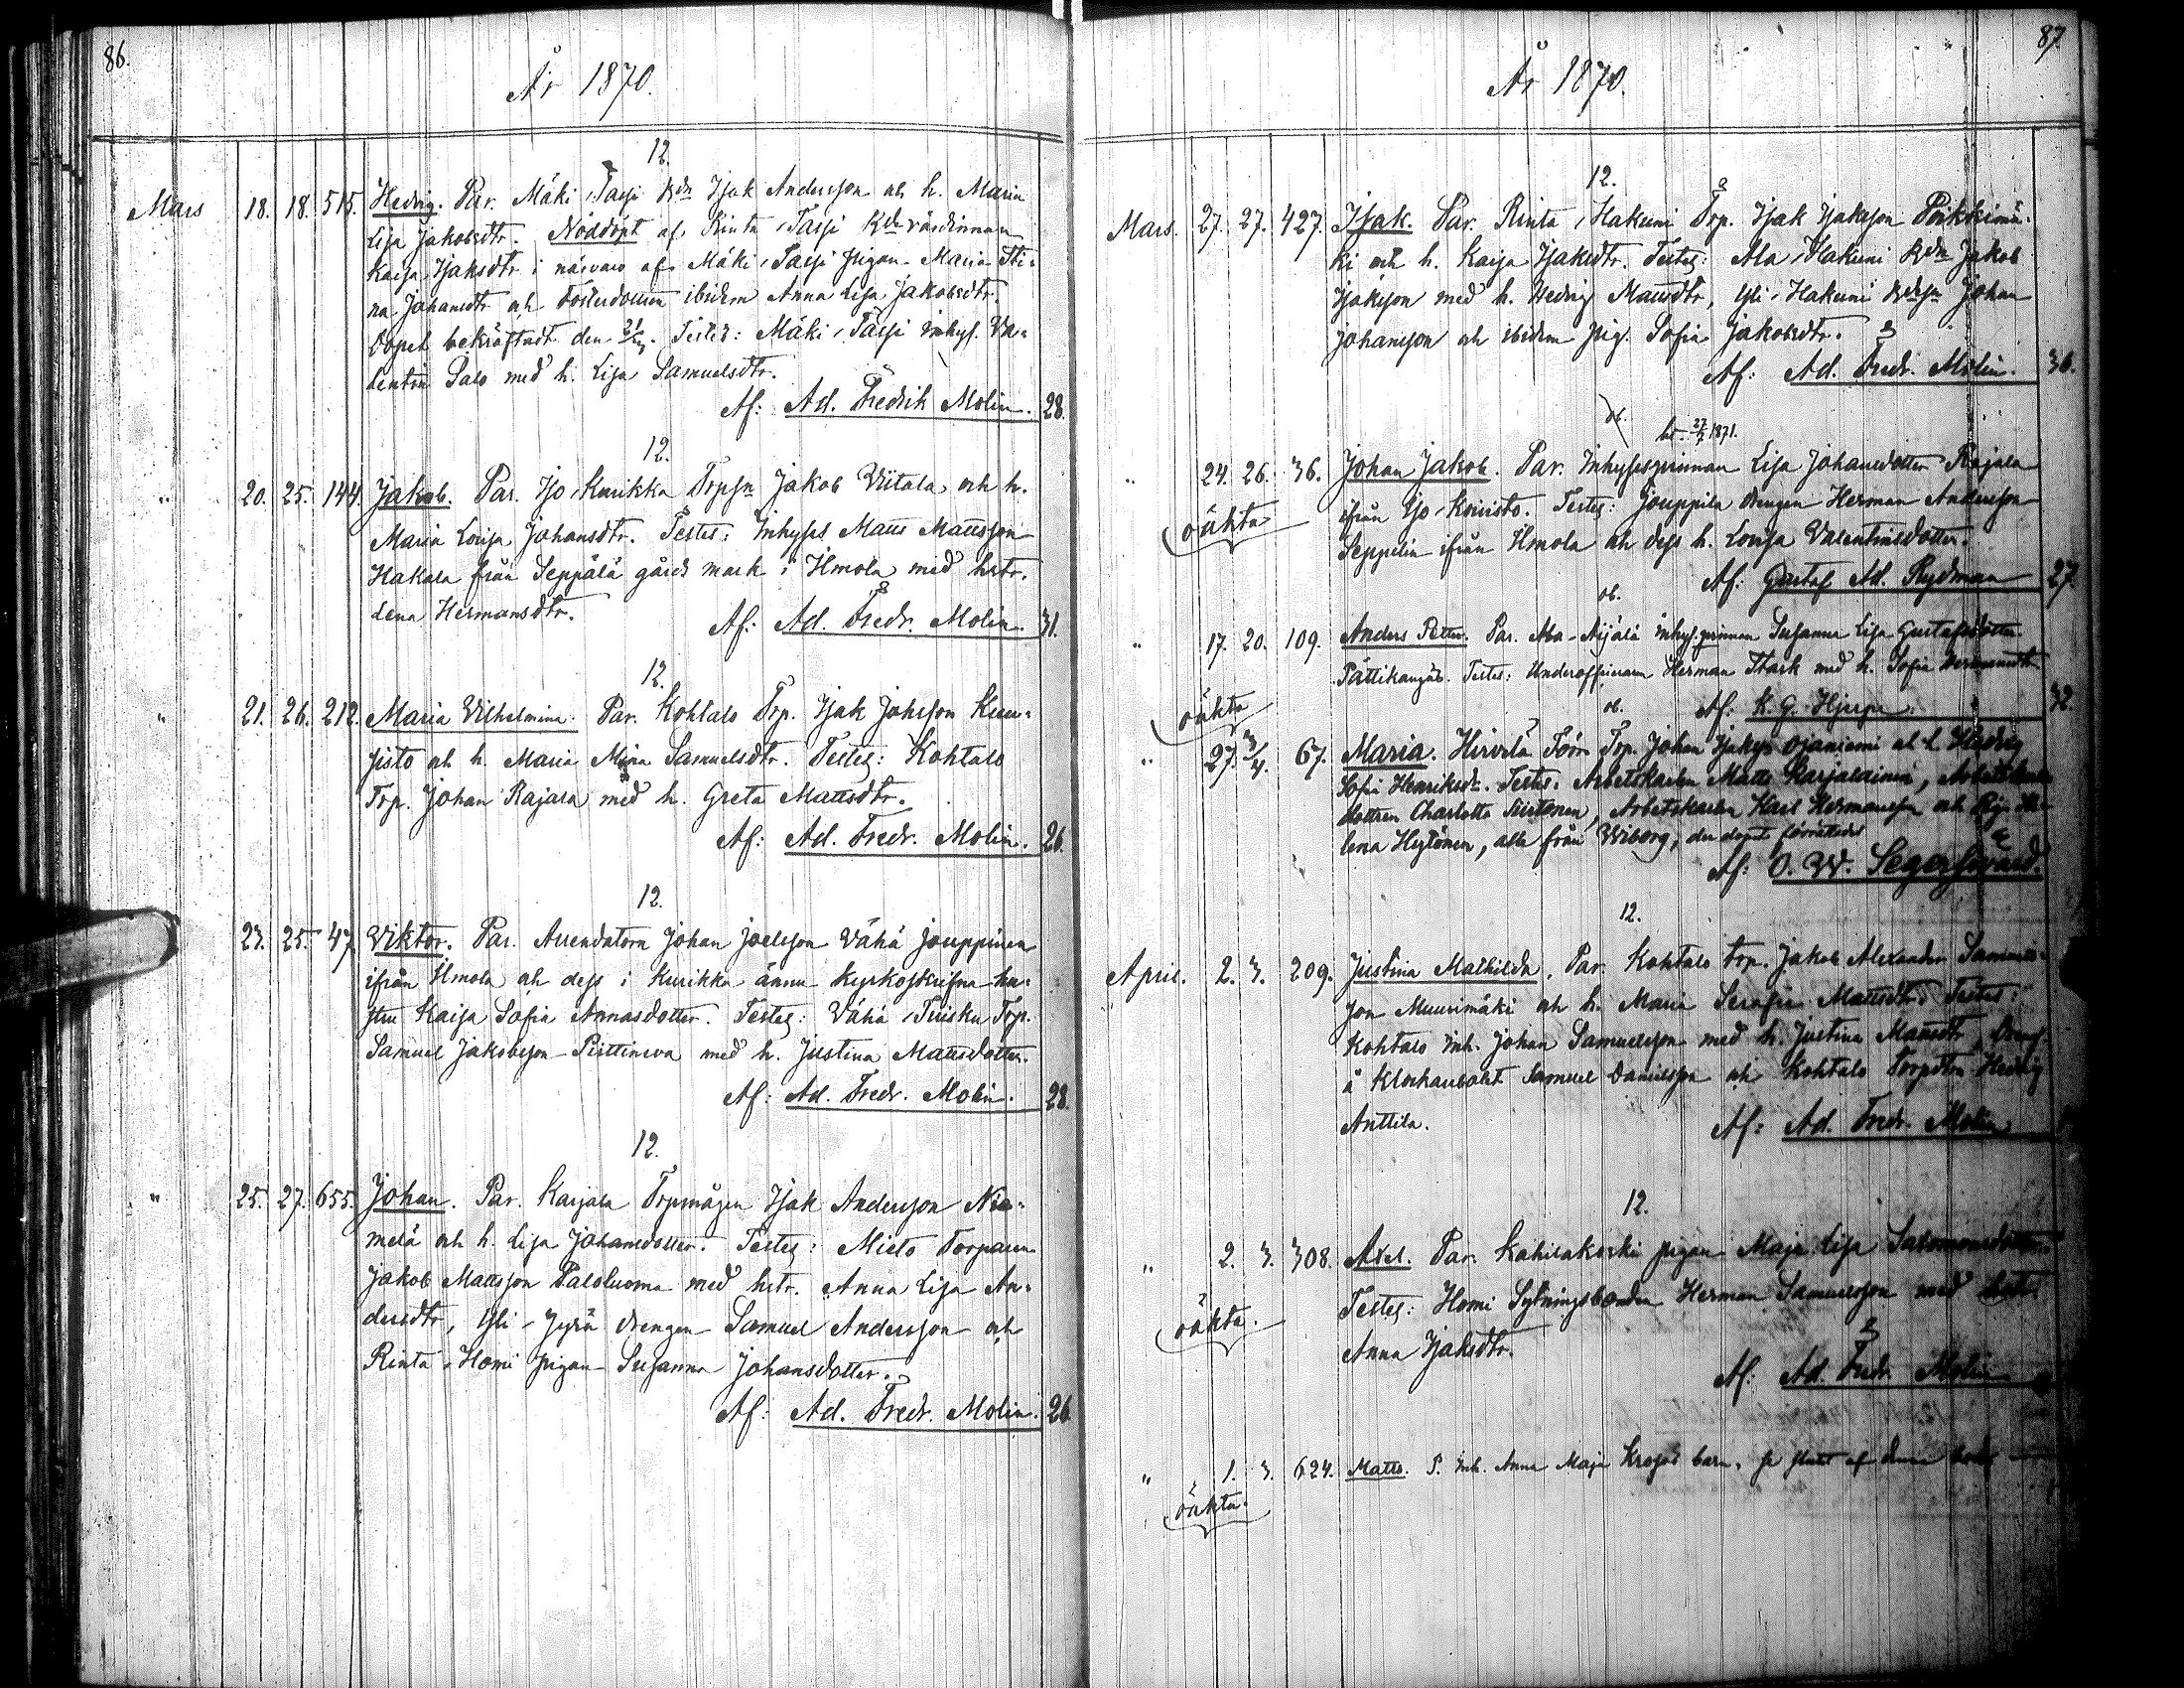 86.
År 1870.
12.
Mars 18. 18. 515. Hedvig. Par. Mäki, Tassi Bdn Isak Andersson och h. Maria
Lisa Jakobsdtr. Nöddöpt af Rinta, Tassi Bde värdinnan
Kaisa Isaksdtr i närvaro af Mäki, Tassi pigan Maria Sti-
na Johansdtr och Fosterdottren ibidem Anna Lisa Jakobsdtr.
Dopet bekräftadt den 21/3. Testes: Mäki, Tassi Inhys. Va-
lentin Salo med h. Lisa Samuelsdtr.
Af: Ad. Fredrik Molin. 28.
12.
" 20. 25. 144. Jakob. Par. Iso, Kurikka Torpsn Jakob Viitala och h.
Maria Lovisa Johansdtr. Testes: Inhyses Matts Mattsson
Hakala från Seppälä gårds mark i Ilmola med hstr.
Lena Hermansdtr.
Af: Ad. Fredr. Molin. 31.
12.
" 21. 26. 212. Maria Vilhelmina. Par. Kohtalo Trp. Isak Johsson Kuu-
sisto och h. Maria Mina Samuelsdtr. Testes: Kohtalo
Trp. Johan Rajala med h. Greta Mattsdtr.
Af: Ad. Fredr. Molin. 26.
12.
23. 25. 47. Viktor. Par. Arrendatorn Johan Joelsson Vähä Jouppinen
ifrån Ilmola och dess i Kurikka ännu kyrkoskrifna hu-
stru Kaisa Sofia Annasdotter. Testes: Vähä, Tuisku Trp.
Samuel Jakobsson Pirttineva med h. Justina Mattsdotter.
Af: Ad. Fredr. Molin. 28.
12.
" 25. 27. 655. Johan. Par. Karjala Trpmågen Isak Andersson Nie-
melä och h. Lisa Johansdotter. Testes: Mieto Torparen
Jakob Mattsson Paloluoma med hstr. Anna Lisa An-
dersdtr, Yli-Jyrä drengen Samuel Andersson och
Rinta, Homi pigan Susanna Johansdotter.
Af: Ad. Fredr. Molin. 26.
87.
År 1870.
12.
Mars. 27. 27. 427. Isak. Par. Rinta, Hakuni Trp. Isak Isaksson Poikkimä-
ki och h. Kaisa Isaksdtr. Testes: Ala, Hakuni Bdn Jakob
Isaksson med h. Hedvig Mattsdtr, Yli, Hakuni Bdsn Johan
Johansson och ibidem pig. Sofia Jakobsdtr.
Af: Ad. Fredr. Molin. 36.
ob.
br. 27/7 1871.
" 24. 26. 36. Johan Jakob. Par. Inhysesqvinnan Lisa Johansdotter Rajala
oäkta ifrån Iso, Koivisto. Testes: Jouppila drengen Herman Andersson
Seppelin ifrån Ilmola och dess h. Lovisa Valentinsdotter.
Af: Gustaf Ad. Rydman 27.
ob.
" 17. 20. 109. Anders Petter. Par. Ala-Äijälä inhys.qvinnan Susanna Lisa Gustafsdotter
Pättikangas. Testes: Underofficeraren Herman Stark med h. Sofia Hermansdtr
oäkta
ob. Af: K. G. Hjerpe. 32.
" 27. 3/4. 67. Maria. Hirvelä Förre Trp. Johan Isakss Ojaniemi och h. Hedvig
Sofia Henriksdr. Testes: Arbetskarlen Matts Karjalainen,
dottren Charlotta, Arbetskarlen Karl Hermansson och Pig. He-
lena Heytönen, alla från Wiborg, der dopet förrättades
Af: O. W. Segerstråle.
12.
April. 2. 3. 209. Justina Mathilda. Par. Kohtalo Trp. Jakob Alexander Samuels-
son Muurimäki och h. Maria Serafia Mattsdtr. Testes:
Kohtalo Inh. Johan Samuelsson med h. Justina Mattsdtr, Dreng
å Klockarbolet Samuel Danielsson och Kohtalo Torpdtrn Hedvig
Anttila.
Af: Ad. Fredr. Molin
12.
" 2. 3. 308. Axel. Par. Kahilakoski pigan Maja Lisa Salomonsdotter
Testes: Homi Sytningsbonden Herman Samuelsson med hstr.
oäkta.
Anna Isaksdtr.
Af: Ad. Fredr. Molin
" 1. 3. 624. Matts. P. Inh. Anna Maja barn, se slutet af denna bok
oäkta.